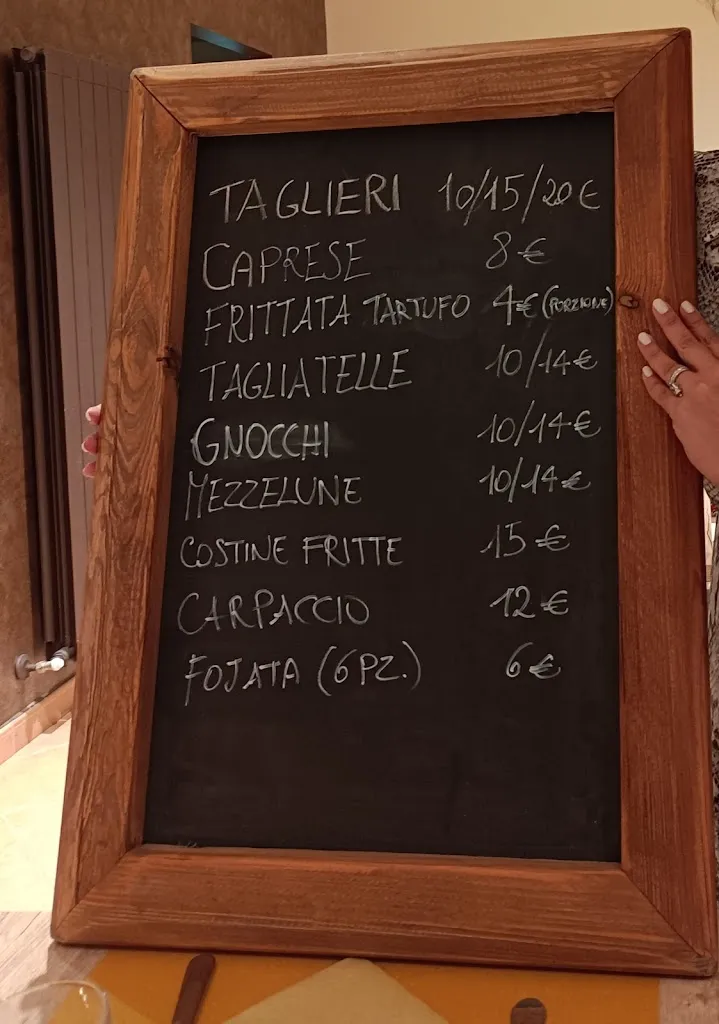 TAGLIERI 10/15/20€
CAPRESE 8€
FRITTATA TARTUFO 4€ (PORZIONE)
TAGLIATELLE 10/14€
GNOCCHI 10/14€
MEZZELUNE 10/14€
COSTINE FRITTE 15€
CARPACCIO 12€
FOJATA (6 PZ.) 6€